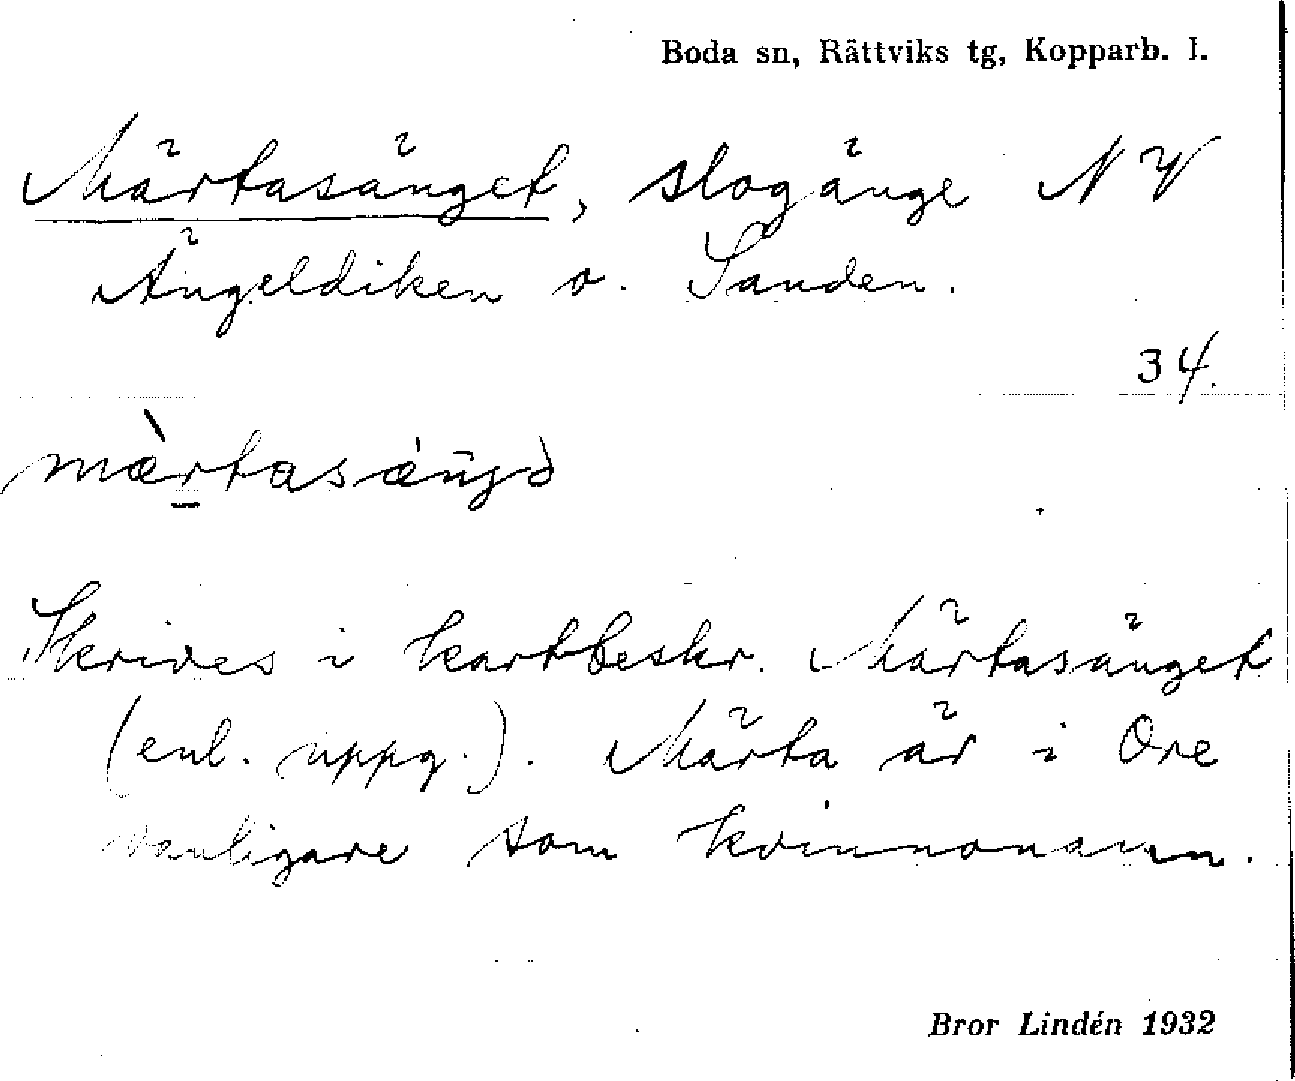 Boda sn, Rättviks tg, Kopparb. l.
Märtasänget, slogänge NV
Ängeldiken o. Sanden.
34.
mæ̀rtasæŋ̄ə
Skrives i kartbeskr. Märtasänget
(enl. uppg.). Märta är i Ore
vanligare som kvinnonamn.
Bror Lindén 1932